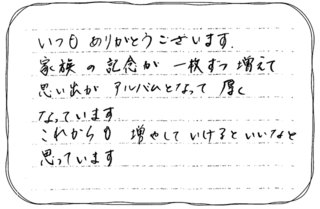 いつも ありがとうございます.
家族 の 記念が 一枚ずつ 増えて
思い出が アルバムとなって 厚く
なっています.
これからも 増やして いけるといいなと
思っています